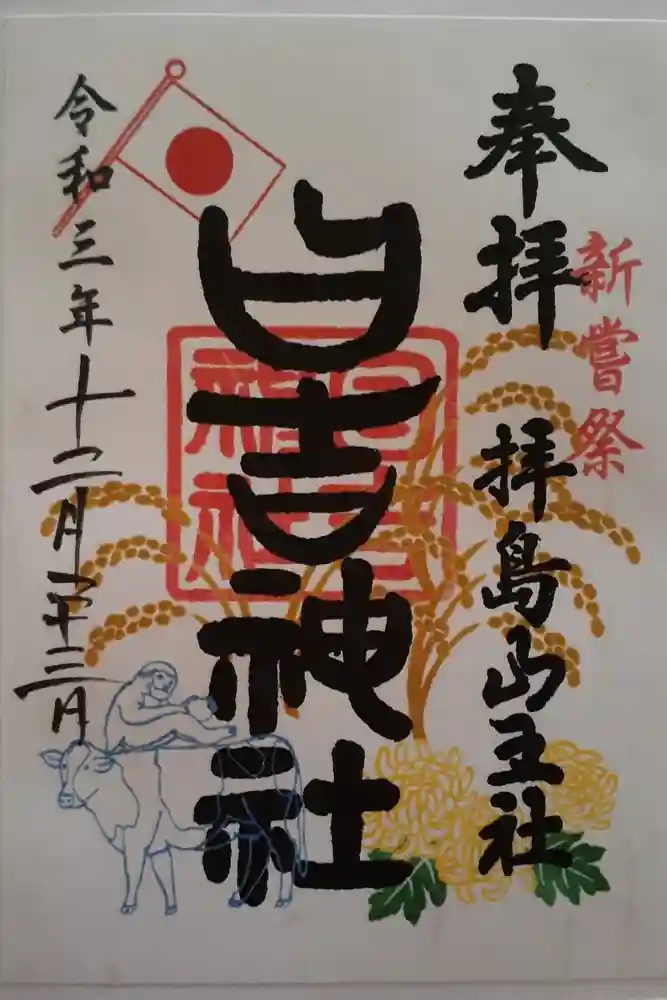 新嘗祭
奉拝 拝島山王社
日吉神社
日吉
神社
令和三年十二月二十三日